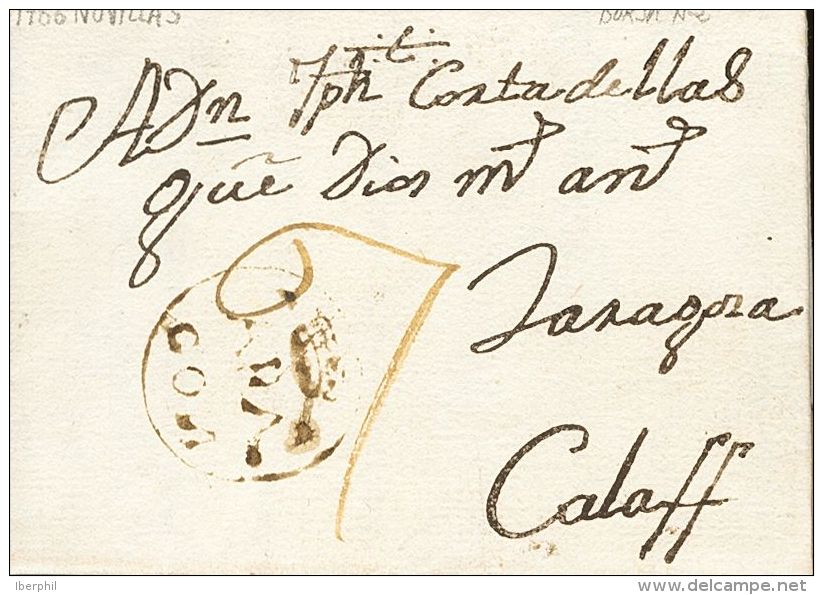 1786 NOVILLAS
BORJA Nº2
A Dn Jph Cortadellas
que Dios ms ans
Zaragoza
Calaff
Iberphil
delcampe.net